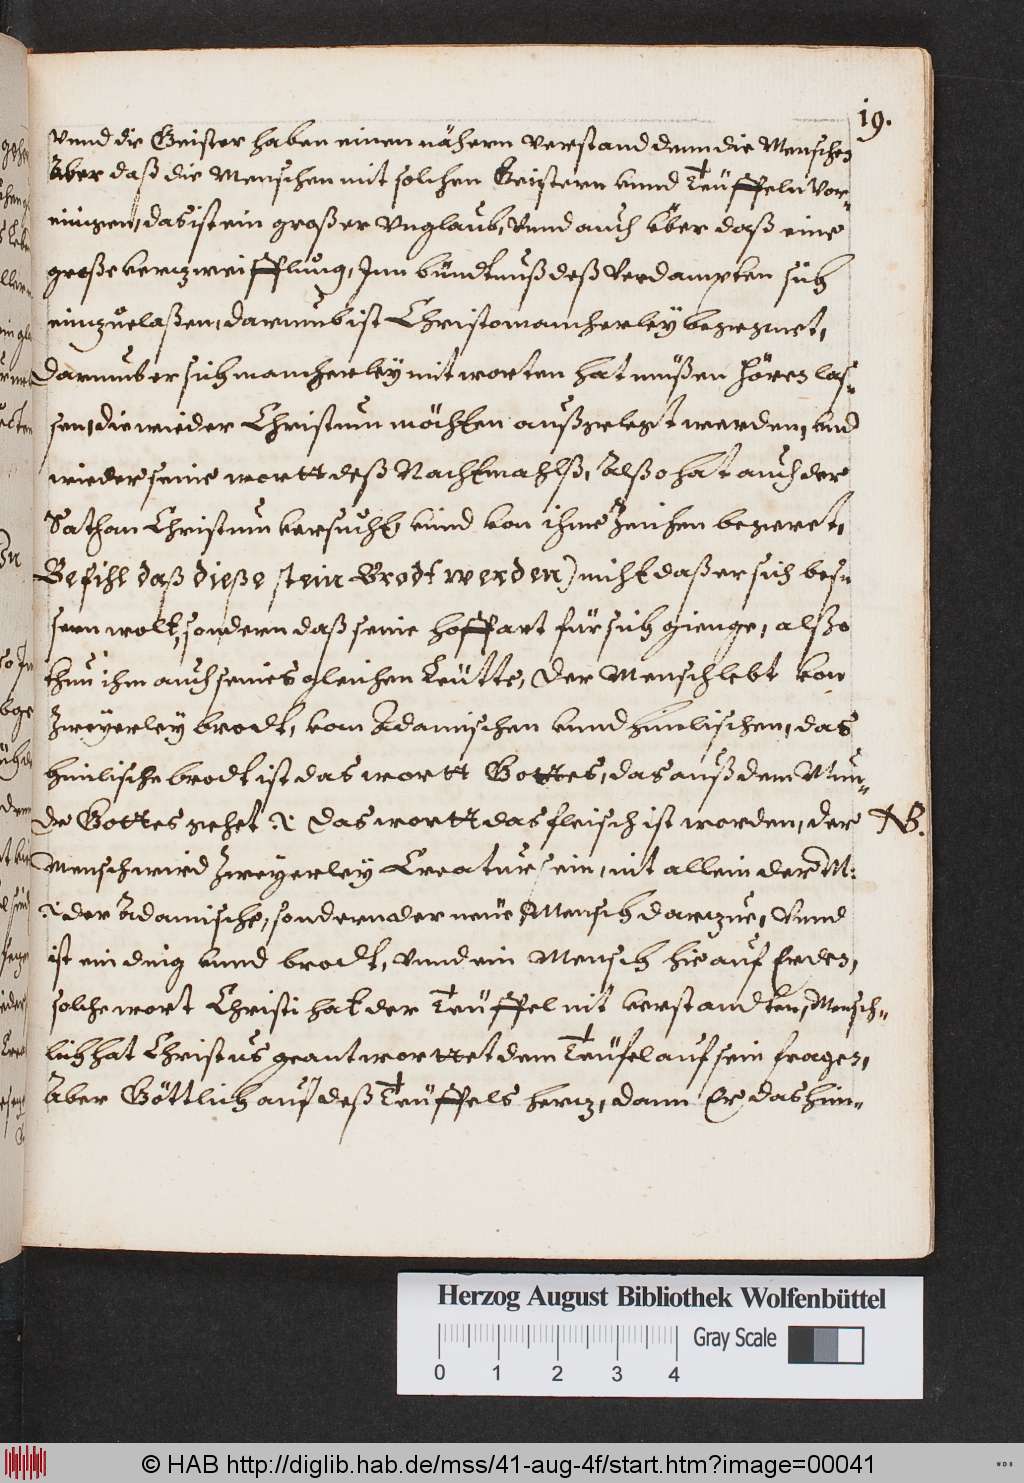 19.
Vnnd die Geister haben einen nähern verstand denn die Menschen
Aber daß die Menschen mit solchen Geistern vnnd Teüffeln Ver-
einigen, das ist ein großer Vnglaub, Vnnd auch über daß eine
große vertzweifflung, Inn bündtnuß deß Verdampten sich
einzuelaßen, darumb ist Christo mancherley begegnet,
Darumb er sich mancherleÿ mit worten hat müßen hören las-
sen, die wieder Christum möchten außgelegt werden, vnd
wieder seine wortt deß Nachtmahlß, Alßo hat auch der
Sathan Christum versucht, vnnd von ihme Zeichen begeret,
Befihl daß dieße stein Brodt werden) nicht daß er sich bes-
sern wolt, sondern daß seine hoffart für sich gienge, alßo
thun ihm auch seines gleichen Leütte, Der Mensch lebt von
Zweyerley brodt, vom Adamischen vnnd himlischen, das
himlische brodt ist das wortt Gottes, das auß dem Mun-
de Gottes gehet .i. das wortt das fleisch ist worden, der
NB.
Mensch wird Zweyerley Creatur sein, nit allein der M:
.i. der Adamische, sondern der neüe Mensch darzue, Vnnd
ist ein ding vnnd brodt, vnnd ein Mensch hie auf Erden,
solche wort Christi hat der Teüffel nit verstandten, Mensch-
lich hat Christus geantworttet dem Teüfel auf sein fragen,
Aber Göttlich auf deß Teüffels hertz, dann Er das him-
Herzog August Bibliothek Wolfenbüttel
Gray Scale
0 1 2 3 4
© HAB http://diglib.hab.de/mss/41-aug-4f/start.htm?image=00041